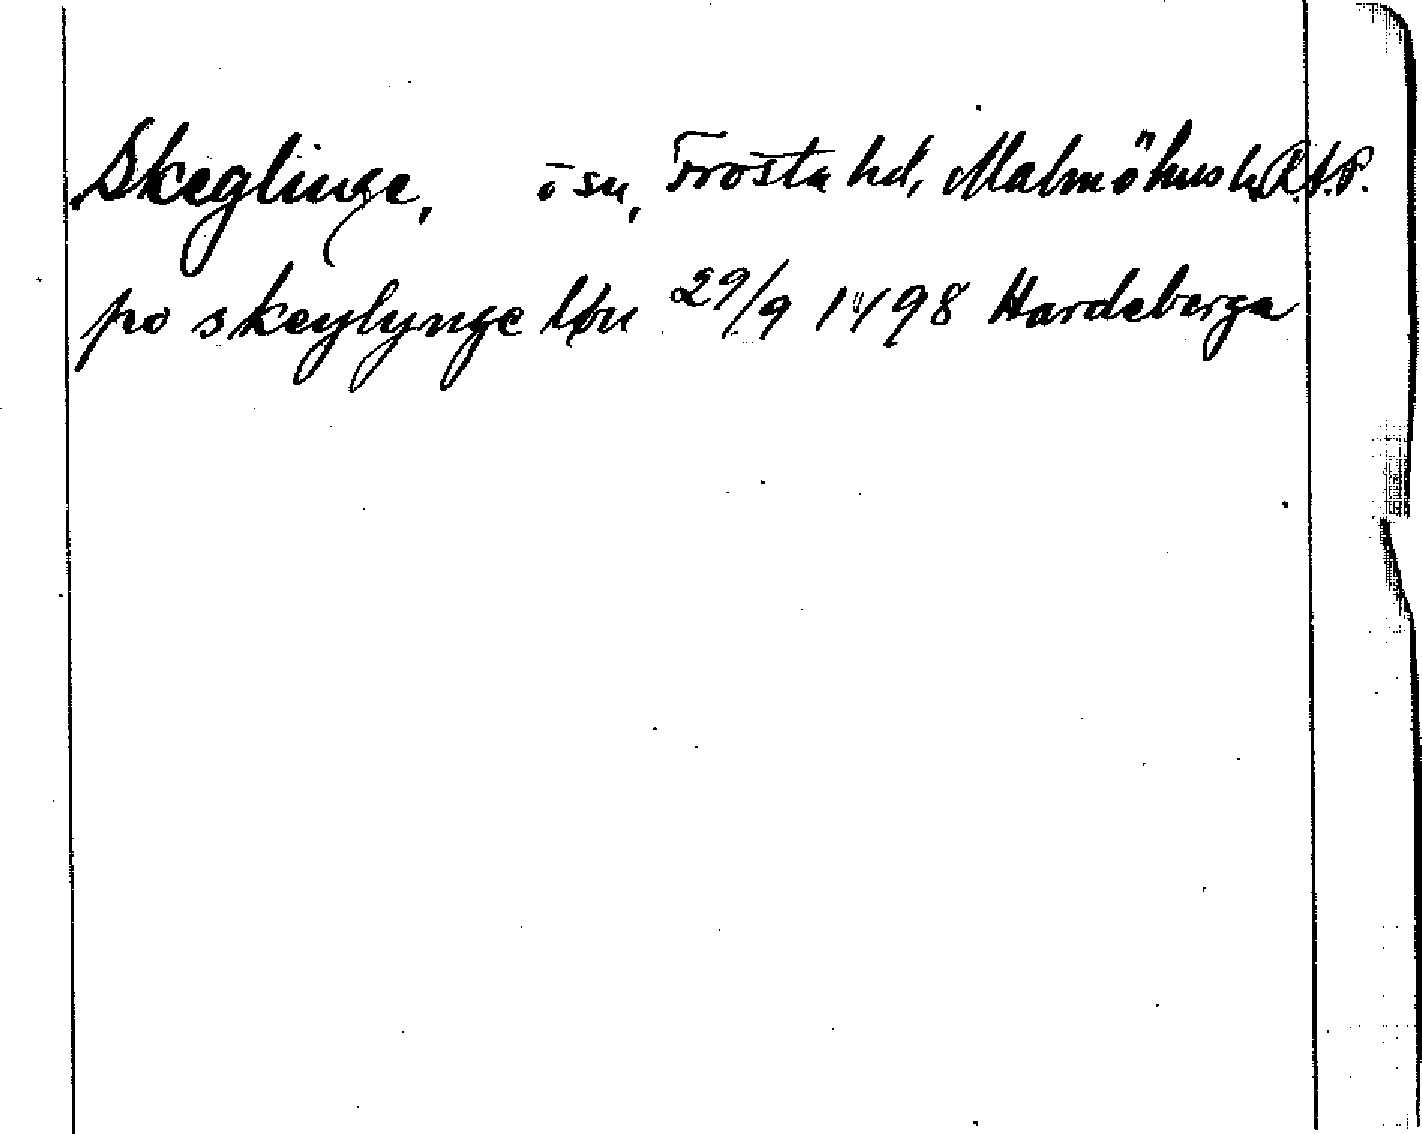 Skeglinge, ö sn, Frosta hd, Malmöhus l. R.A.P.
po skeylynge bøn 29/9 1498 Hardeberga